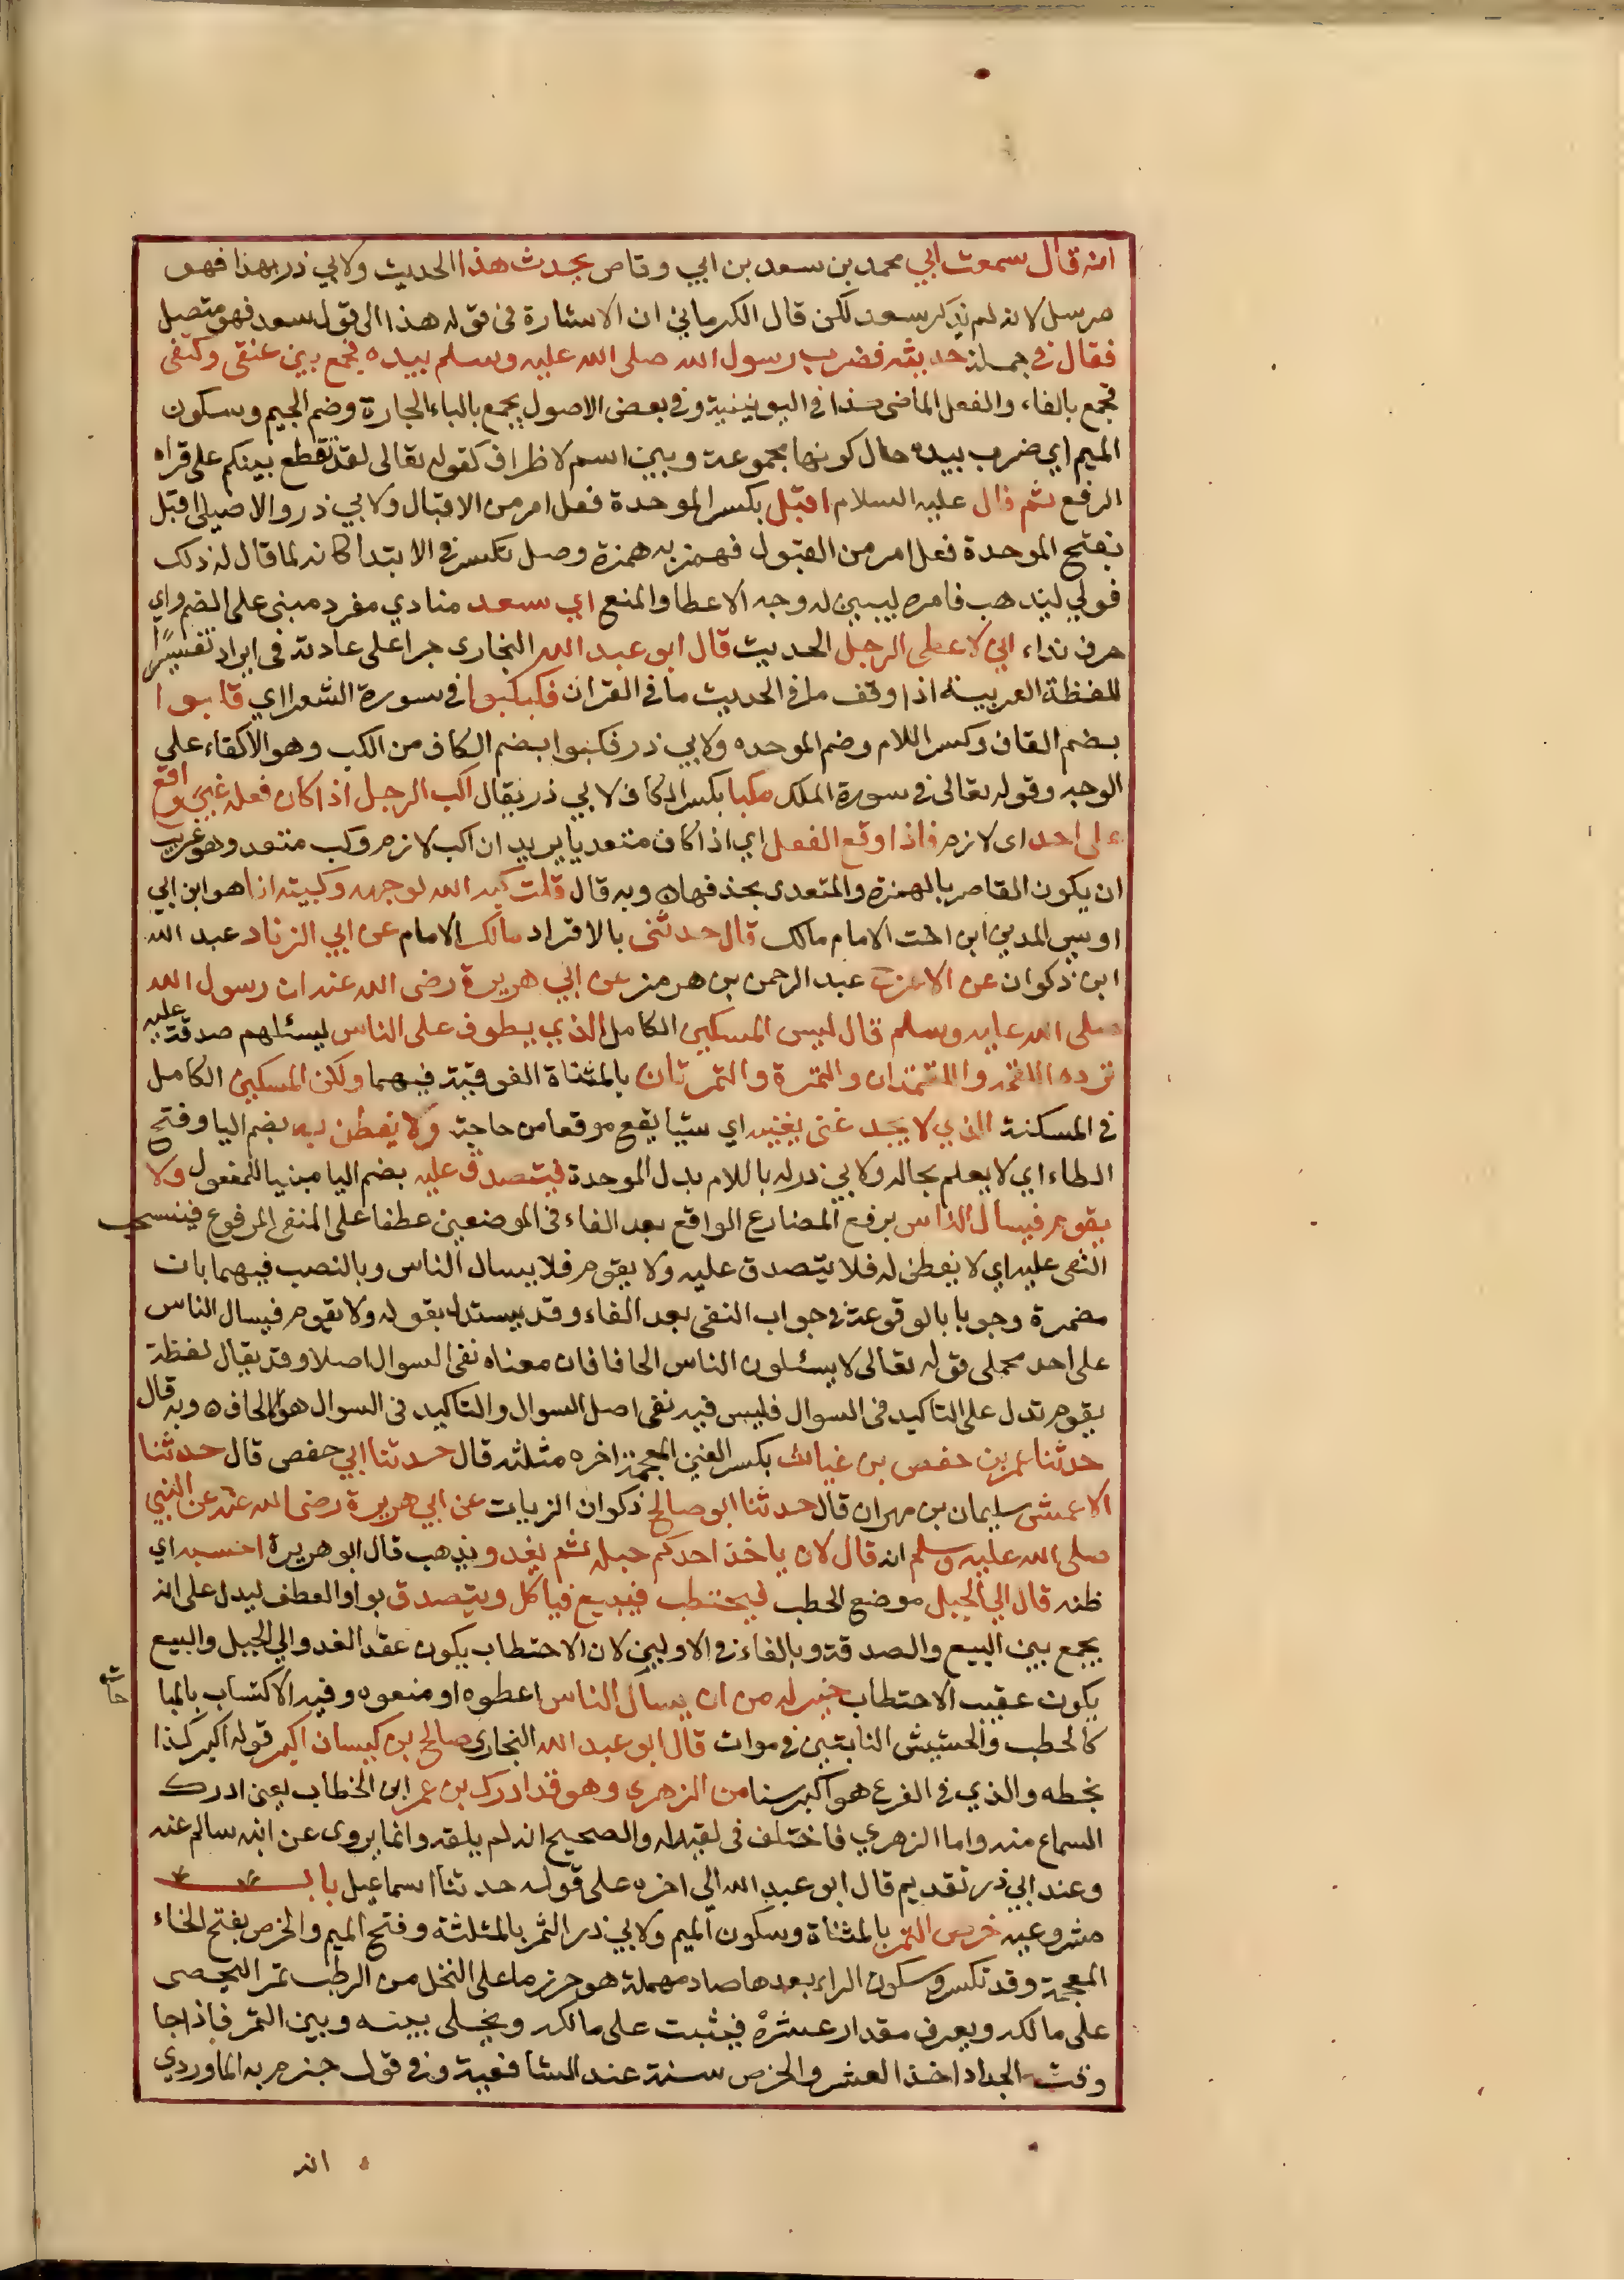 انه قال سمعت ابي محمد بن سعد بن ابي وقاص يحدث هذا الحديث ولابي ذر بهذا فهو
مرسل لانه لم يذكر سعد لكن قال الكرماني ان الاشارة في قوله هذا الى قول سعد فهو متصل
فقال في جملة حديثه فضرب رسول الله صلى الله عليه وسلم بيده فجمع بين عنقى وكتفى
فجمع بالفاء والفعل الماضى كذا في اليونينية وفي بعض الاصول يجمع بالباء الجارة وضم الجيم وسكون
الميم اي ضرب بيده حال كونها مجموعة وبين اسم لا ظراف كقوله تعالى لقد تقطع بينكم على قراه
الرفع ثم قال عليه السلام اقبل بكسر الموحدة فعل امر من الاقبال ولابي ذر والاصيلى اقبل
بفتح الموحدة فعل امر من القبول فهمز به همزة وصل تكسر في الابتدا كانه لما قال له ذلك
فولي ليذهب فامره ليبين له وجه الاعطا والمنع اي سعد منادي مفرد مبنى على الضم واي
حرف نداء اني لاعطى الرجل الحديث قال ابو عبد الله البخارى جرا على عادته في ايراد تفسير
للفظة الغريبة اذا وقف ما في الحديث ما في القران فكبكبوا في سورة الشعرا اي قلبوا
بضم القاف وكسر اللام وضم الموحده ولابي ذر فكبوا بضم الكاف من الكب وهو الاكفاء على
الوجه وقوله تعالى في سورة الملك مكبا بكسر الكاف لابي ذر يقال اكب الرجل اذا كان فعله غير واقع
على احد اى لازم فاذا وقع الفعل اي اذا كان متعديا يريد ان اكب لازم وكب متعد وهو غريب
ان يكون القاصر بالهمزة والمتعدى بحذفها ه وبه قال قلت كبه الله لوجهه وكببته انا هو ابن ابي
اويس المدني ابن اخت الامام مالك قال حدثنى بالافراد مالك الامام عن ابي الزناد عبد الله
ابن ذكوان عن الاعرج عبد الرحمن بن هرمز عن ابي هريرة رضى الله عنه ان رسول الله
صلى الله عليه وسلم قال ليس المسكين الكامل الذي يطوف على الناس ليسئلهم صدقة عليه
ترده اللقمة واللقمتان والتمرة والتمرتان بالمثناة الفوقية فيهما ولكن المسكين الكامل
في المسكنة الذي لا يجد غنى يغنيه اي شيا يقع موقعا من حاجته ولا يفطن به بضم اليا وفتح
الطاء اي لا يعلم بحاله ولابي ذر له باللام بدل الموحدة فيتصدق عليه بضم اليا مبنيا للمفعول ولا
يقوم فيسال الناس برفع المضارع الواقع بعد الفاء في الموضعين عطفا على المنفى المرفوع فينسحب
النفى عليه اي لا يفطن له فلا يتصدق عليه ولا يقوم فلا يسال الناس وبالنصب فيهما بان
مضمرة وجوبا بالوقوعه في جواب النفى بعد الفاء وقد يستدل بقوله ولا يقوم فيسال الناس
على احد محملى قوله تعالى لا يسئلون الناس الحافا فان معناه نفى السوال اصلا وقد يقال لفظة
يقوم تدل على التاكيد في السوال فليس فيه نفى اصل السوال والتاكيد في السوال هو الالحاف ه وبه قال
حدثنا عمر بن حفص بن غياث بكسر الغين المعجمة اخره مثلثه قال حدثنا ابي حفص قال حدثنا
الاعمش سليمان بن مهران قال حدثنا ابو صالح ذكوان الزيات عن ابي هريرة رضى الله عنه عن النبي
صلى الله عليه وسلم انه قال لان ياخذ احدكم حبله ثم يغدو يذهب قال ابو هريرة احسبه اي
ظنه قال الي الجبل موضع الحطب فيحتطب فيبيع فياكل ويتصدق بواو العطف ليدل على انه
يجمع بين البيع والصدقة وبالفاء في الاوليين لان الاحتطاب يكون عقد الغدو الي الجبل والبيع
يكون عقيب الاحتطاب خير له من ان يسال الناس اعطوه او منعوه وفيه الاكتساب بالمبا
حات
كالحطب والحشيش النابتين في موات قال ابو عبد الله البخارى صالح بن كيسان اكبر قوله اكبر كذا
بخطه والذي في الفرع هو اكبر سنا من الزهري وهو قد ادرك بن عمر ابن الخطاب يعنى ادرك
السماع منه واما الزهري فاختلف في لقيه له والصحيح انه لم يلقه وانما يروى عن ابنه سالم عنه
وعند ابي ذر تقديم قال ابو عبد الله الي اخره على قوله حدثنا اسماعيل باب
مشروعيه خرص التمر بالمثناة وسكون الميم ولابي ذر الثمر بالمثلثة وفتح الميم والخرص بفتح الخاء
المعجمة وقد تكسر وسكون الراء بعدها صاد مهملة هو حرز ما على النخل من الرطب تمرا ليحصى
على مالكه ويعرف مقدار عشره فيثبت على مالكه ويخلى بينه وبين التمر فاذا جا
وقت الجداد اخذ العشر والخرص سنة عند الشافعية وفي قول جزم به الماوردي
انه